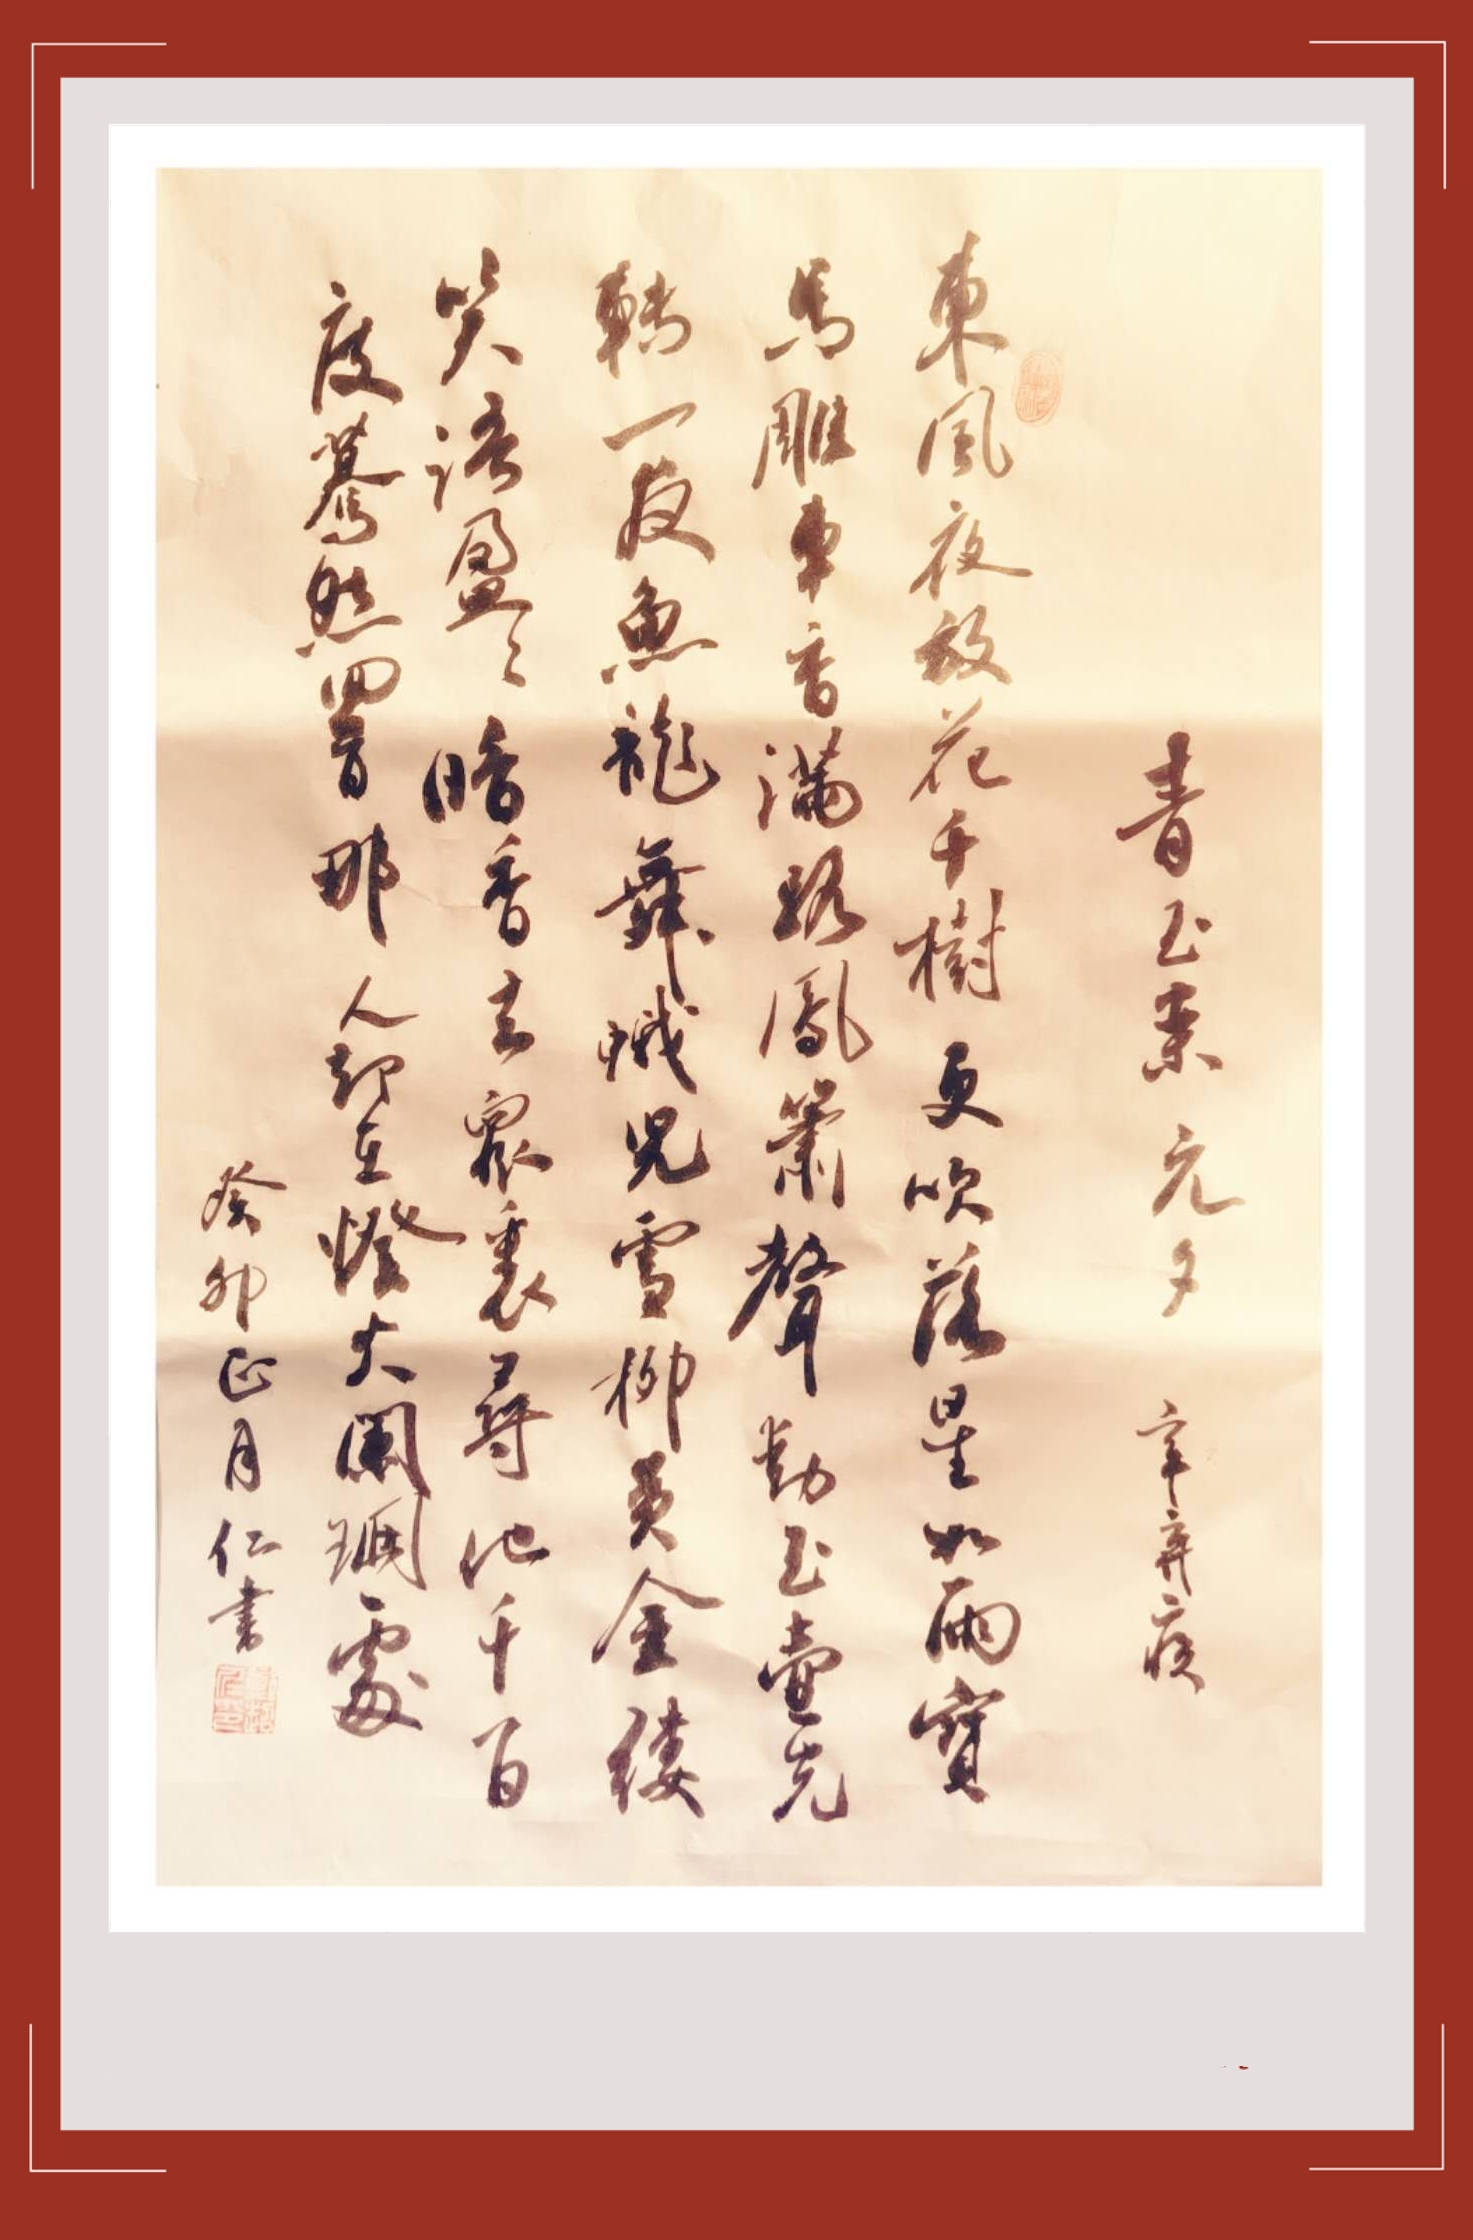 青玉案 元夕 辛弃疾
東風夜放花千樹更吹落星如雨寶
馬雕車香滿路鳳簫聲動玉壺光
轉一夜魚龍舞蛾兒雪柳黃金縷
笑語盈々暗香去眾裏尋他千百
度驀然回首那人却在燈火闌珊處
癸卯正月仁書